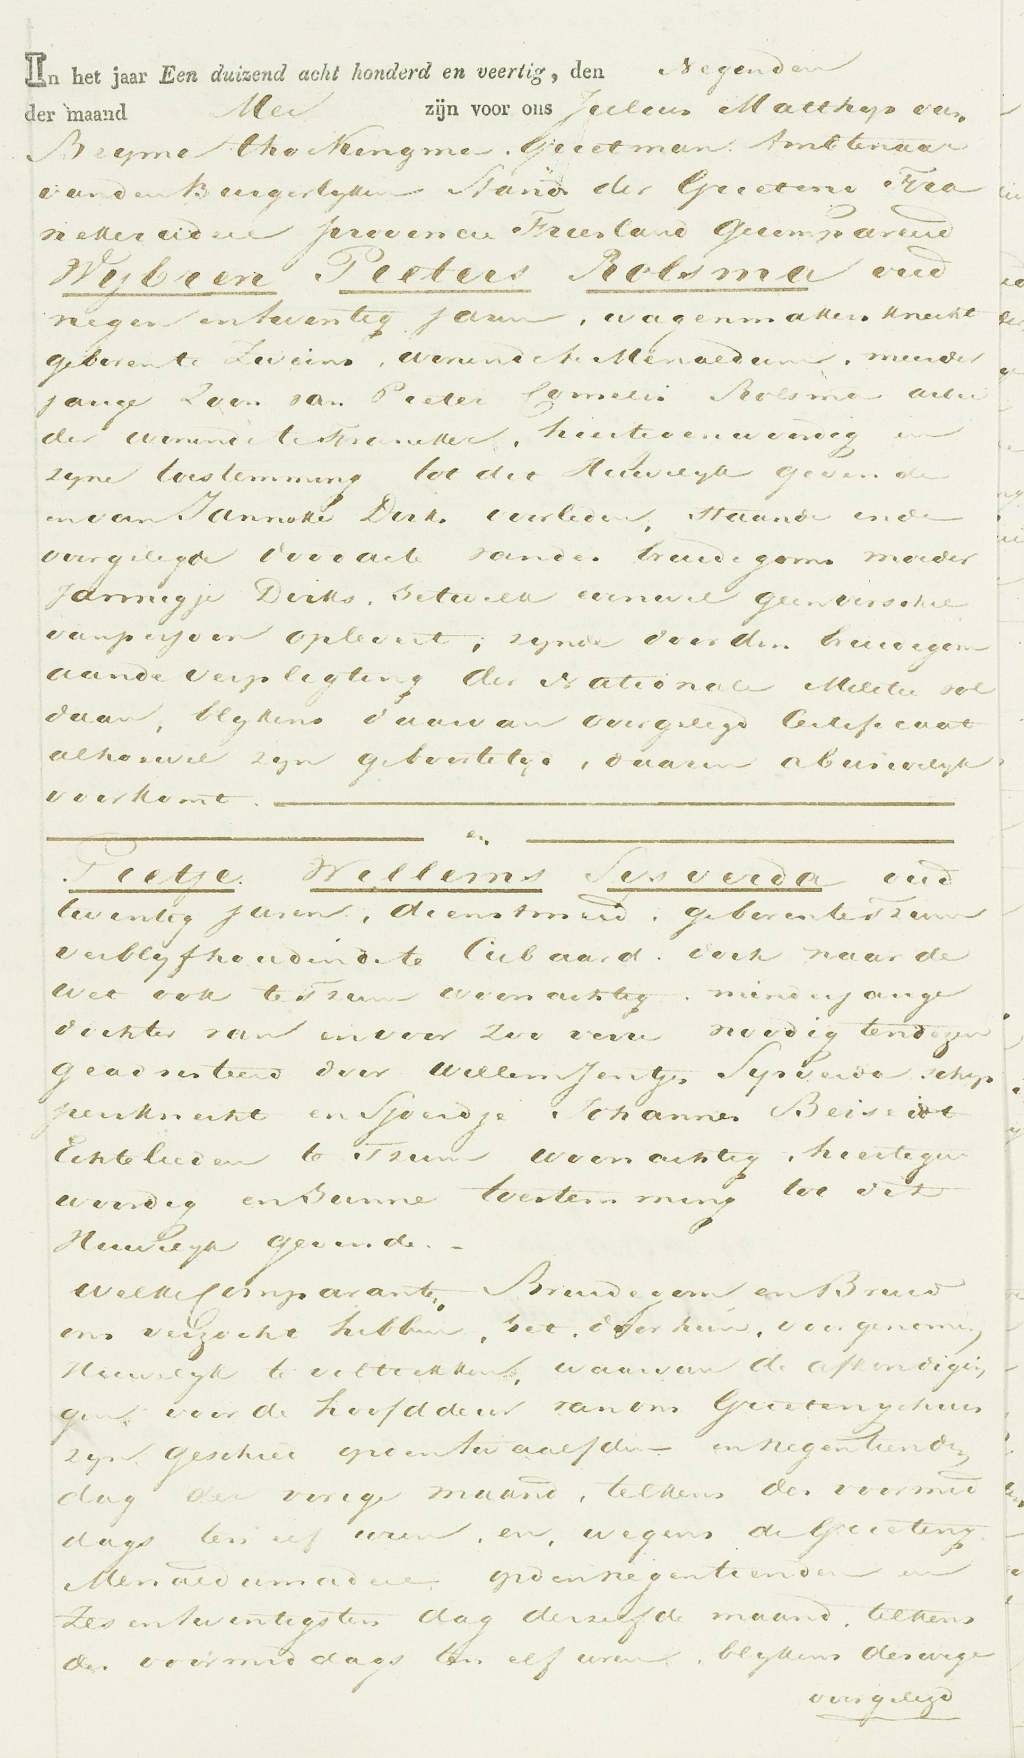 In het jaar Een duizend acht honderd en veertig, den Negenden
der maand Mei zijn voor ons Julius Matthijs van
Beyma tho Kingma. Grietman. Ambtenaar
van den Burgerlyken Stand der Grietenij Fra
nekeradeel provincie Friesland Gecompareerd
Wybren Pieters Rolsma oud
negen en twentig jaren, wagenmakers knecht
geboren te Zweins, wonende te Menaldum, meerder
jarige Zoon van Pieter Cornelis Rolsma arbei
der wonende te Franeker, hiertegenwoordig en
zyne toestemming tot dit Huwelyk gevende
en van Janneke Dirks overleden, staande in de
overgelegde doodacte van des bruidegoms moeder
Jannigje Dirks. hetwelk evenwel geen verschil
van persoon oplevert, zynde door den bruidegom
aan de verpligting der Nationale Militie vol
daan, blykens daarvan overgelegd Certificaat
alhoewel zyn geboortetyd, daarin abusivelyk
voorkomt.
en
Pietje Willems Sysverda oud
twentig jaren, dienstmeid, geboren te Tzum
verblyfhoudende te Cubaard. doch naar de
wet ook te Tzum woonachtig. minderjarige
dochter van en voor zoo verre noodig ten dezen
geadsisteerd door Willem Jentjes Sysverda schip
persknecht en Sjoerdje Johannes
Echtelieden te Tzum woonachtig, hiertegen
woordig en hunne toestemming tot dit
Huwelyk gevende.
Welke Comparanten, Bruidegom en Bruid
ons verzocht hebben, het, door hun, voorgenomen
Huwelyk te voltrekken, waarvan de afkondigin
gen voor de hoofddeur van ons Grietenyhuis
zyn geschied op den twaalfden en negentienden
dag der vorige maand, telkens des voormid
dags ten elf uren, en, wegens de Grieteny
Menaldumadeel op den negentienden en
zes en twentigsten dag derzelfde maand, telkens
des voormiddags ten elf uren, blykens deswege
overgelegd